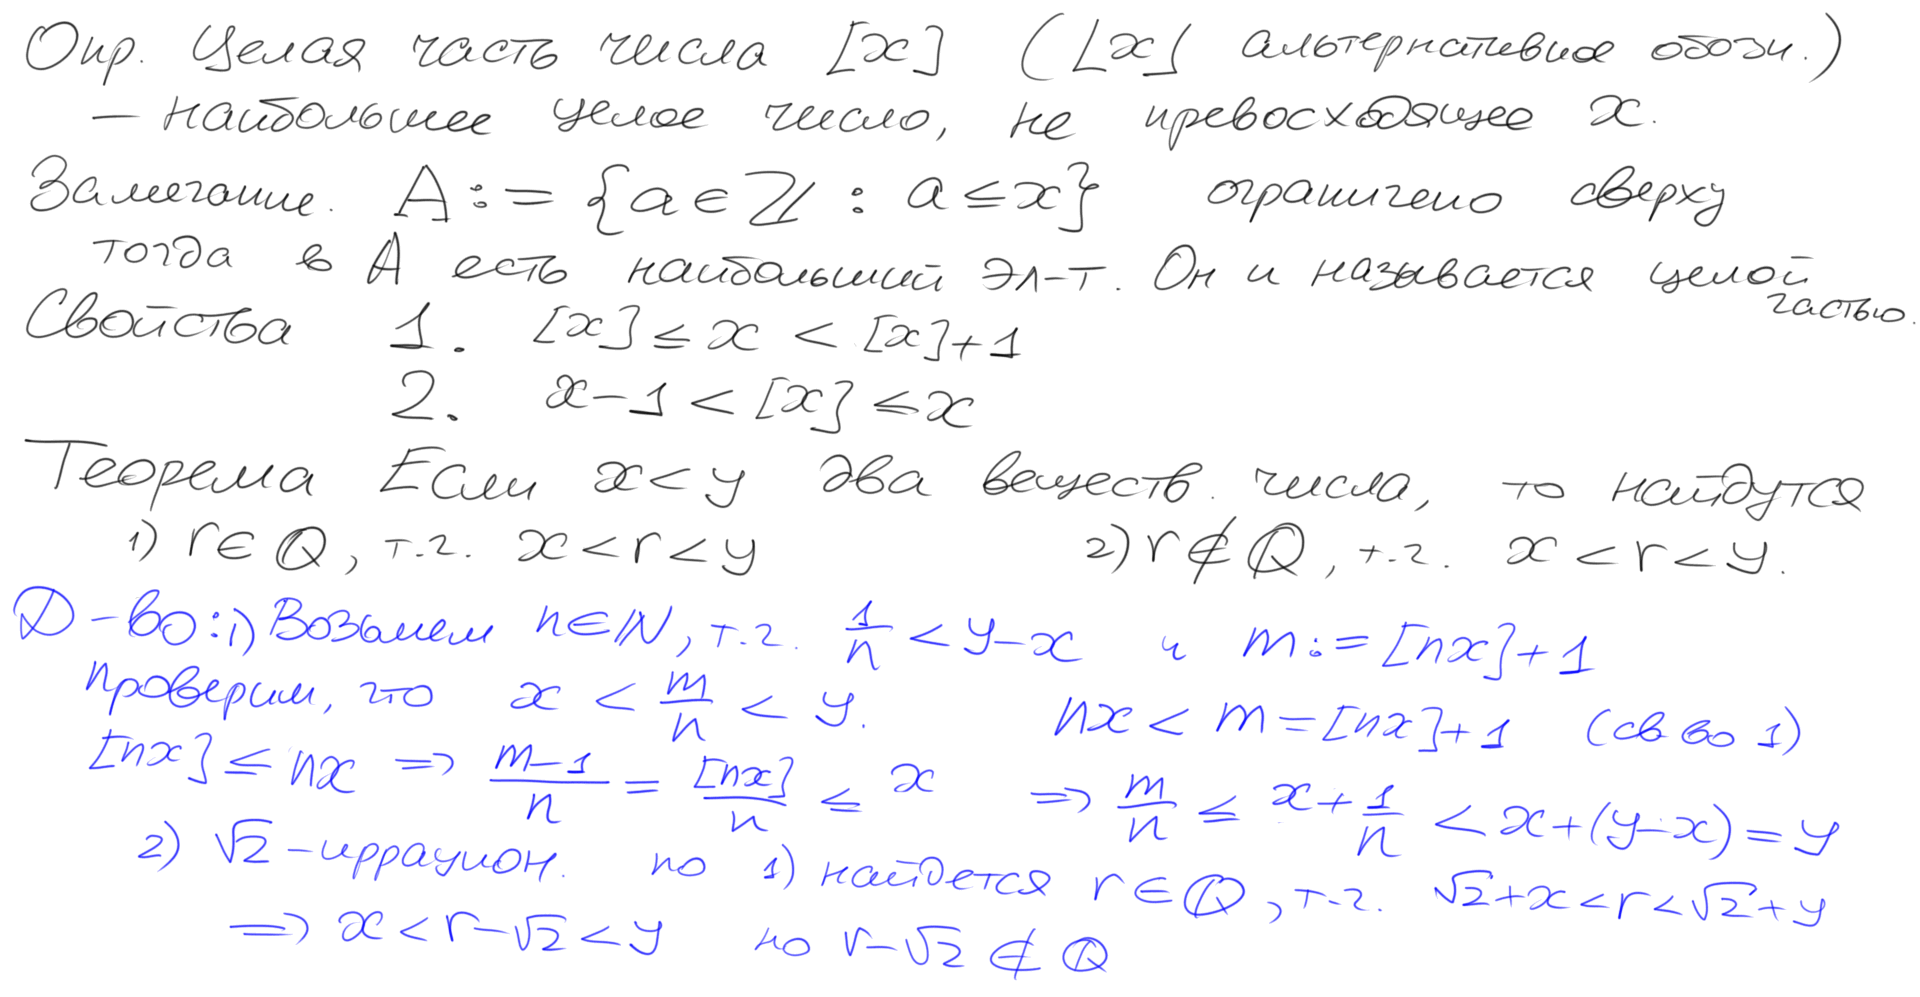 Опр. Целая часть числа [x] (⌊x⌋ альтернативное обозн.)
— наибольшее целое число, не превосходящее x.
Замечание. A := {a ∈ ℤ : a ≤ x} ограничено сверху
тогда в A есть наибольший эл-т. Он и называется целой частью.
Свойства 1. [x] ≤ x < [x]+1
2. x-1 < [x] ≤ x
Теорема Если x < y два веществ. числа, то найдутся
1) r ∈ ℚ, т.ч. x < r < y 2) r ∉ ℚ, т.ч. x < r < y.
Д-во: 1) Возьмем n ∈ ℕ, т.ч. 1/n < y-x и m := [nx]+1
проверим, что x < m/n < y. nx < m = [nx]+1 (св во 1)
[nx] ≤ nx ⇒ (m-1)/n = [nx]/n ≤ x ⇒ m/n ≤ x + 1/n < x+(y-x) = y
2) √2 - иррацион. по 1) найдется r ∈ ℚ, т.ч. √2+x < r < √2+y
⇒ x < r-√2 < y но r-√2 ∉ ℚ